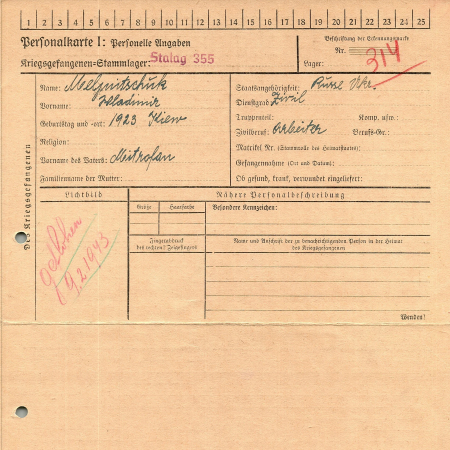 1 2 3 4 5 6 7 8 9 10 11 12 13 14 15 16 17 18 19 20 21 22 23 24 25
Personalkarte I: Personelle Angaben
Kriegsgefangenen-Stammlager: Stalag 355
Beschriftung der Erkennungsmarke
Nr. 314
Lager:
Des Kriegsgefangenen
Name: Melnitschuk
Vorname: Wladimir
Geburtstag und -ort: 1923 Kiew
Religion:
Vorname des Vaters: Mitrofan
Familienname der Mutter:
Staatsangehörigkeit: Russe Ukr.
Dienstgrad: Zivil
Truppenteil: Komp. usw.:
Zivilberuf: Arbeiter Berufs-Gr.:
Matrikel Nr. (Stammrolle des Heimatstaates):
Gefangennahme (Ort und Datum):
Ob gesund, krank, verwundet eingeliefert:
Lichtbild
geflohen
9.2.1943
Nähere Personalbeschreibung
Größe
Haarfarbe
Besondere Kennzeichen:
Fingerabdruck
des rechten! Zeigefingers
Name und Anschrift der zu benachrichtigenden Person in der Heimat
des Kriegsgefangenen
Wenden!